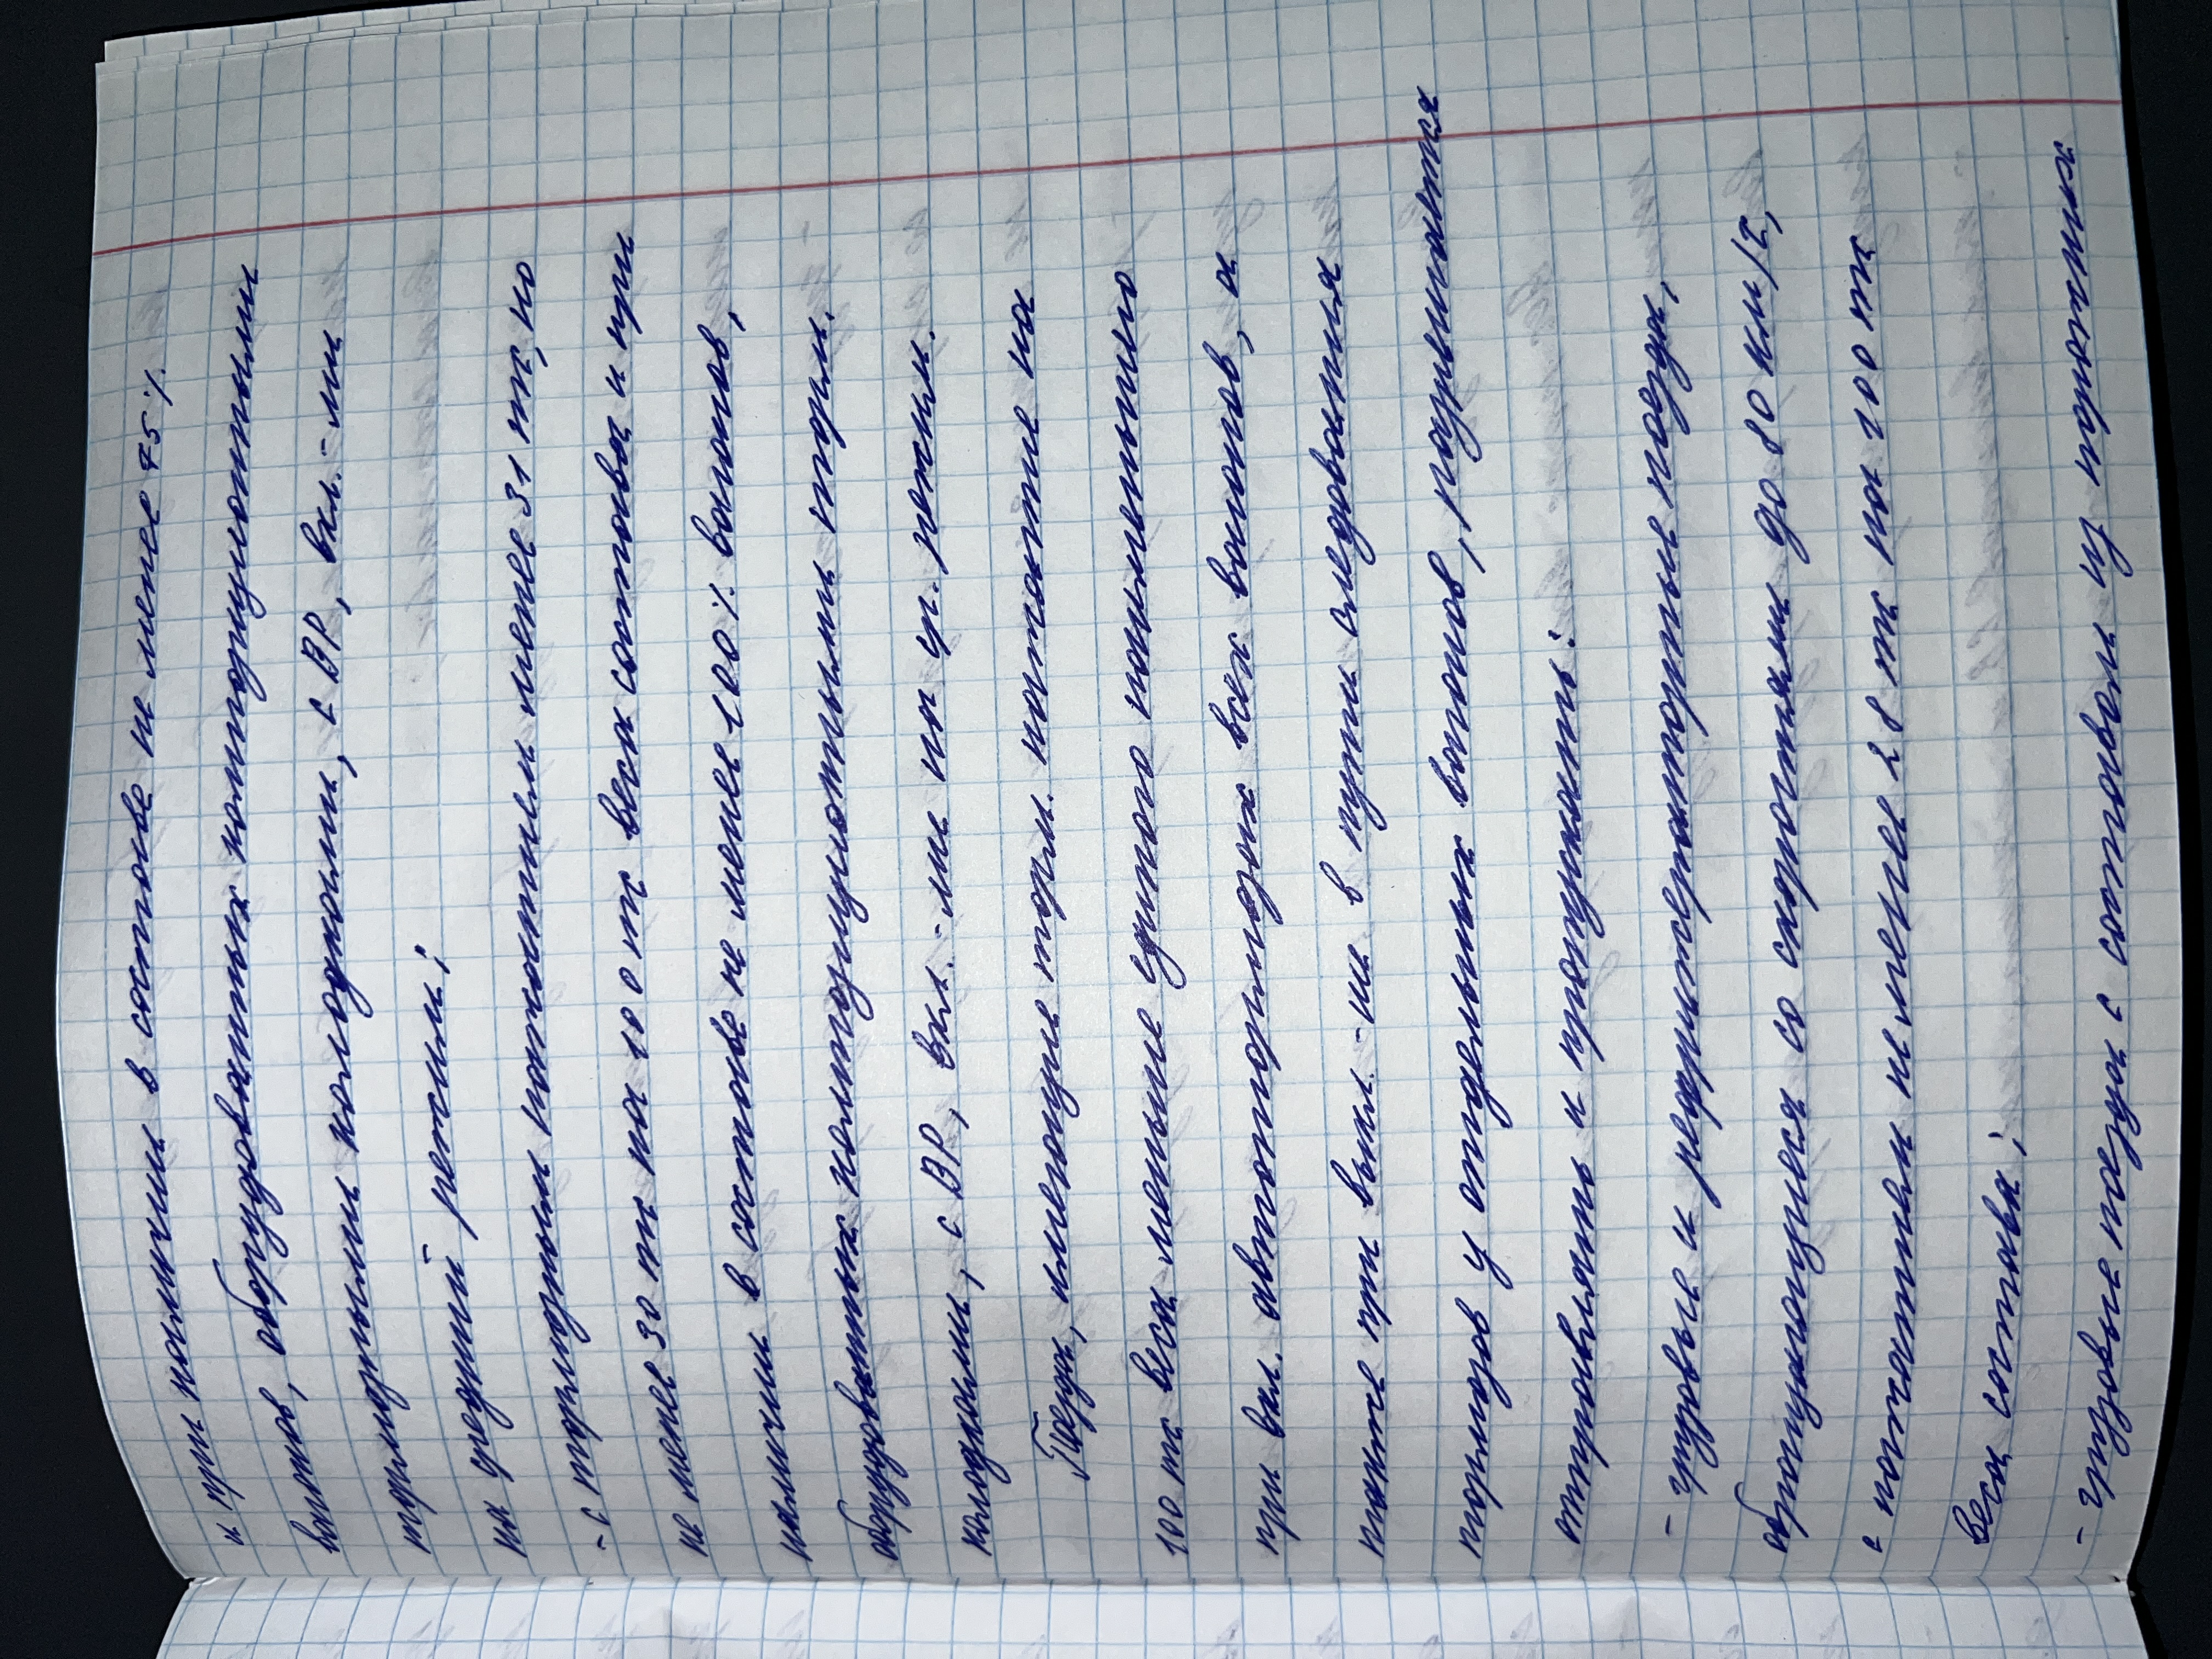 и при наличии в составе не менее 75%
вагонов, оборудованных композиционными
тормозными колодками, с ВР, вкл.-ми
на средний режим;
- с тормозным нажатием менее 31 т, но
не менее 30 т на 100 т веса состава и при
наличии в составе не менее 100% вагонов,
оборудованных композиционными торм.
колодками, с ВР, вкл.-ми на ср. режим.
Поезда, имеющие торм. нажатие на
100 т веса меньше единого наименьшего
при вкл. автотормозах всех вагонов, а
также при выкл.-ии в пути следования
тормозов у отдельных вагонов, разрешается
отправлять и пропускать:
- грузовые и рефрижераторные поезда,
обращающиеся со скоростями до 80 км/ч,
с нажатием не менее 28 т на 100 т
веса состава;
- грузовые поезда с составом из порожних